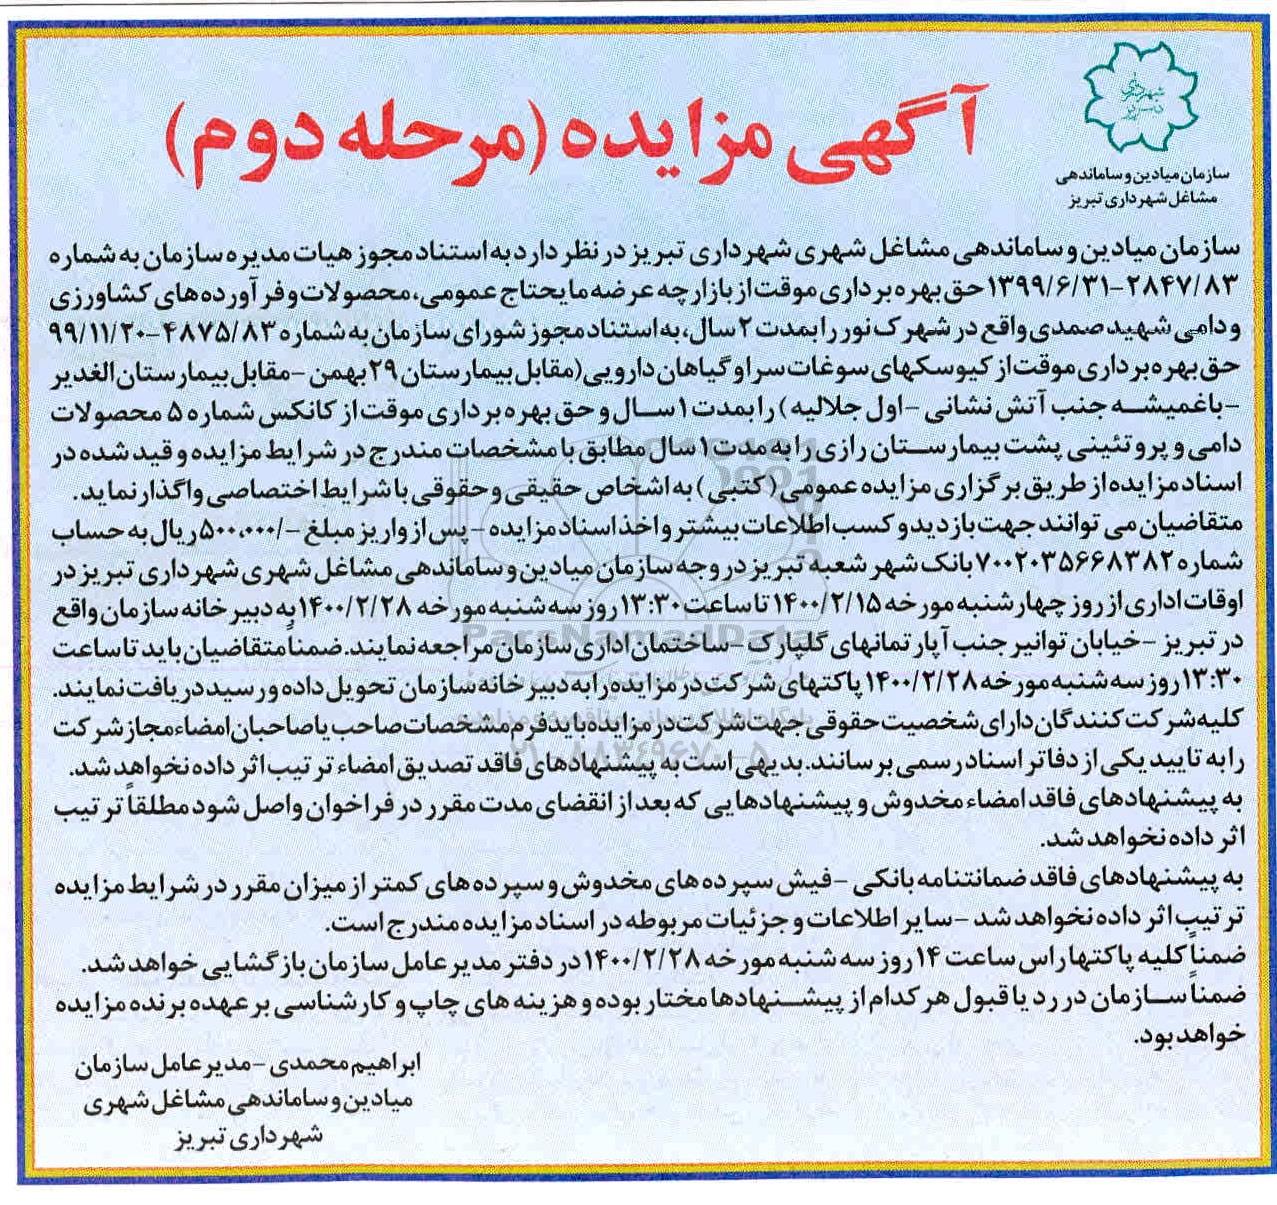 شهرداری تبریز
سازمان میادین و ساماندهی
مشاغل شهرداری تبریز
آگهی مزایده (مرحله دوم)
سازمان میادین و ساماندهی مشاغل شهری شهرداری تبریز در نظر دارد به استناد مجوز هیات مدیره سازمان به شماره
۱۳۹۹/۶/۳۱-۲۸۴۷/۸۳ حق بهره برداری موقت از بازارچه عرضه مایحتاج عمومی، محصولات و فرآورده های کشاورزی
و دامی شهید صمدی واقع در شهرک نور را بمدت ۲ سال، به استناد مجوز شورای سازمان به شماره ۴۸۷۵/۸۳-۹۹/۱۱/۲۰
حق بهره برداری موقت از کیوسکهای سوغات سرا و گیاهان دارویی (مقابل بیمارستان ۲۹ بهمن - مقابل بیمارستان الغدیر
- باغمیشه جنب آتش نشانی - اول جلالیه) را بمدت ۱ سال و حق بهره برداری موقت از کانکس شماره ۵ محصولات
دامی و پروتئینی پشت بیمارستان رازی را به مدت ۱ سال مطابق با مشخصات مندرج در شرایط مزایده و قید شده در
اسناد مزایده از طریق برگزاری مزایده عمومی (کتبی) به اشخاص حقیقی و حقوقی با شرایط اختصاصی واگذار نماید.
متقاضیان می توانند جهت بازدید و کسب اطلاعات بیشتر و اخذ اسناد مزایده - پس از واریز مبلغ -/۵۰۰،۰۰۰ ریال به حساب
شماره ۷۰۰۲۰۳۵۶۶۸۳۸۲ بانک شهر شعبه تبریز در وجه سازمان میادین و ساماندهی مشاغل شهری شهرداری تبریز در
اوقات اداری از روز چهارشنبه مورخه ۱۴۰۰/۲/۱۵ تا ساعت ۱۳:۳۰ روز سه شنبه مورخه ۱۴۰۰/۲/۲۸ به دبیرخانه سازمان واقع
در تبریز - خیابان توانیر جنب آپارتمانهای گلپارک - ساختمان اداری سازمان مراجعه نمایند. ضمناً متقاضیان باید تا ساعت
۱۳:۳۰ روز سه شنبه مورخه ۱۴۰۰/۲/۲۸ پاکتهای شرکت در مزایده را به دبیرخانه سازمان تحویل داده و رسید دریافت نمایند.
کلیه شرکت کنندگان دارای شخصیت حقوقی جهت شرکت در مزایده باید فرم مشخصات صاحب یا صاحبان امضاء مجاز شرکت
را به تایید یکی از دفاتر اسناد رسمی برسانند. بدیهی است به پیشنهادهای فاقد تصدیق امضاء ترتیب اثر داده نخواهد شد.
به پیشنهادهای فاقد امضاء مخدوش و پیشنهادهایی که بعد از انقضای مدت مقرر در فراخوان واصل شود مطلقاً ترتیب
اثر داده نخواهد شد.
به پیشنهادهای فاقد ضمانتنامه بانکی - فیش سپرده های مخدوش و سپرده های کمتر از میزان مقرر در شرایط مزایده
ترتیب اثر داده نخواهد شد - سایر اطلاعات و جزئیات مربوطه در اسناد مزایده مندرج است.
ضمناً کلیه پاکتها راس ساعت ۱۴ روز سه شنبه مورخه ۱۴۰۰/۲/۲۸ در دفتر مدیر عامل سازمان بازگشایی خواهد شد.
ضمناً سازمان در رد یا قبول هر کدام از پیشنهادها مختار بوده و هزینه های چاپ و کارشناسی بر عهده برنده مزایده
خواهد بود.
ابراهیم محمدی - مدیر عامل سازمان
میادین و ساماندهی مشاغل شهری
شهرداری تبریز
ParsNamadData
۰۲۱-۸۸۳۴۹۶۷۰-۵